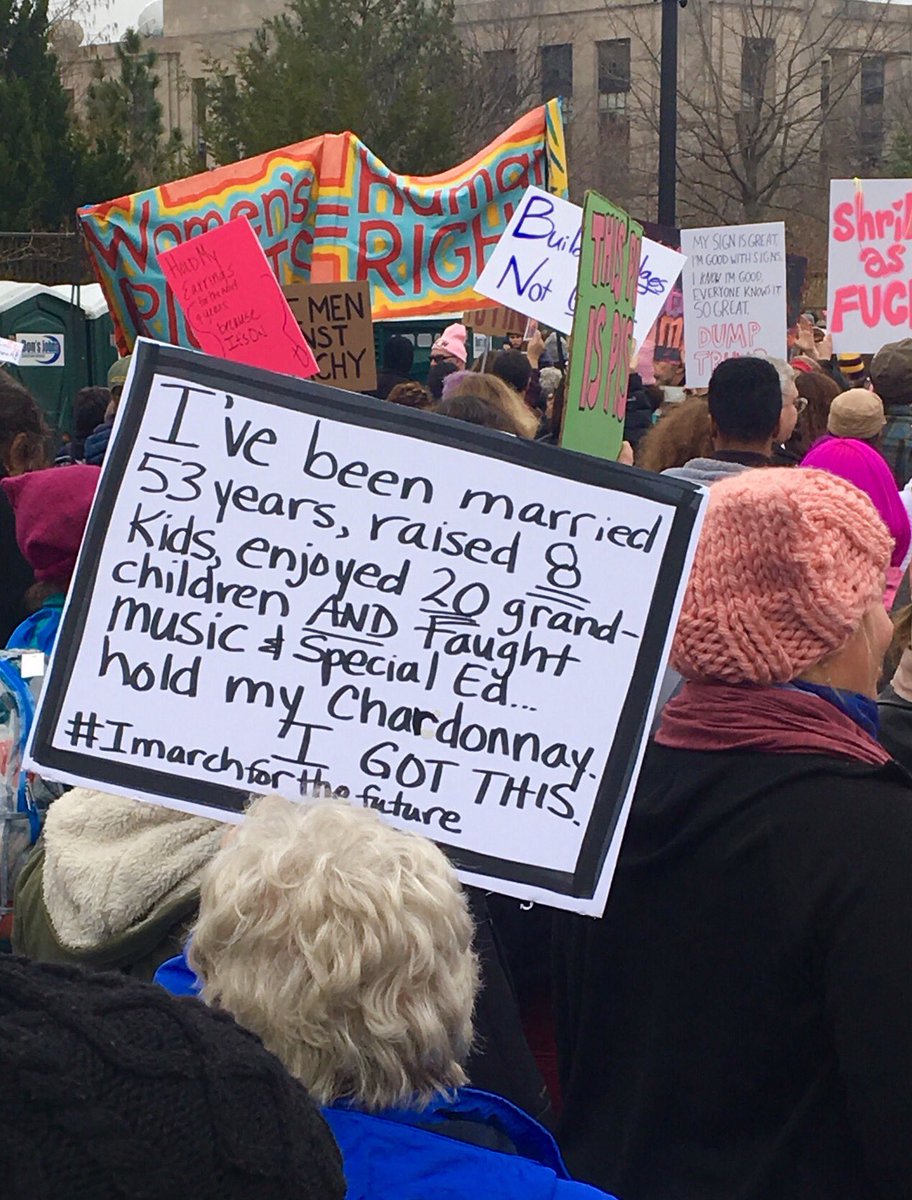 Women's = Human
RIGHTS RIGHT
Hold My
Earrings
because
It's On!
MEN
Not
THIS
IS
MY SIGN IS GREAT.
I'M GOOD WITH SIGNS.
I KNOW I'M GOOD.
EVERYONE KNOWS IT
SO GREAT.
DUMP
TRUMP
Shrill
as
FUCK
Don's john's
I've been married
53 years, raised 8
Kids, enjoyed 20 grand-
children AND taught
music & Special Ed...
hold my Chardonnay.
I GOT THIS.
#Imarchforthefuture